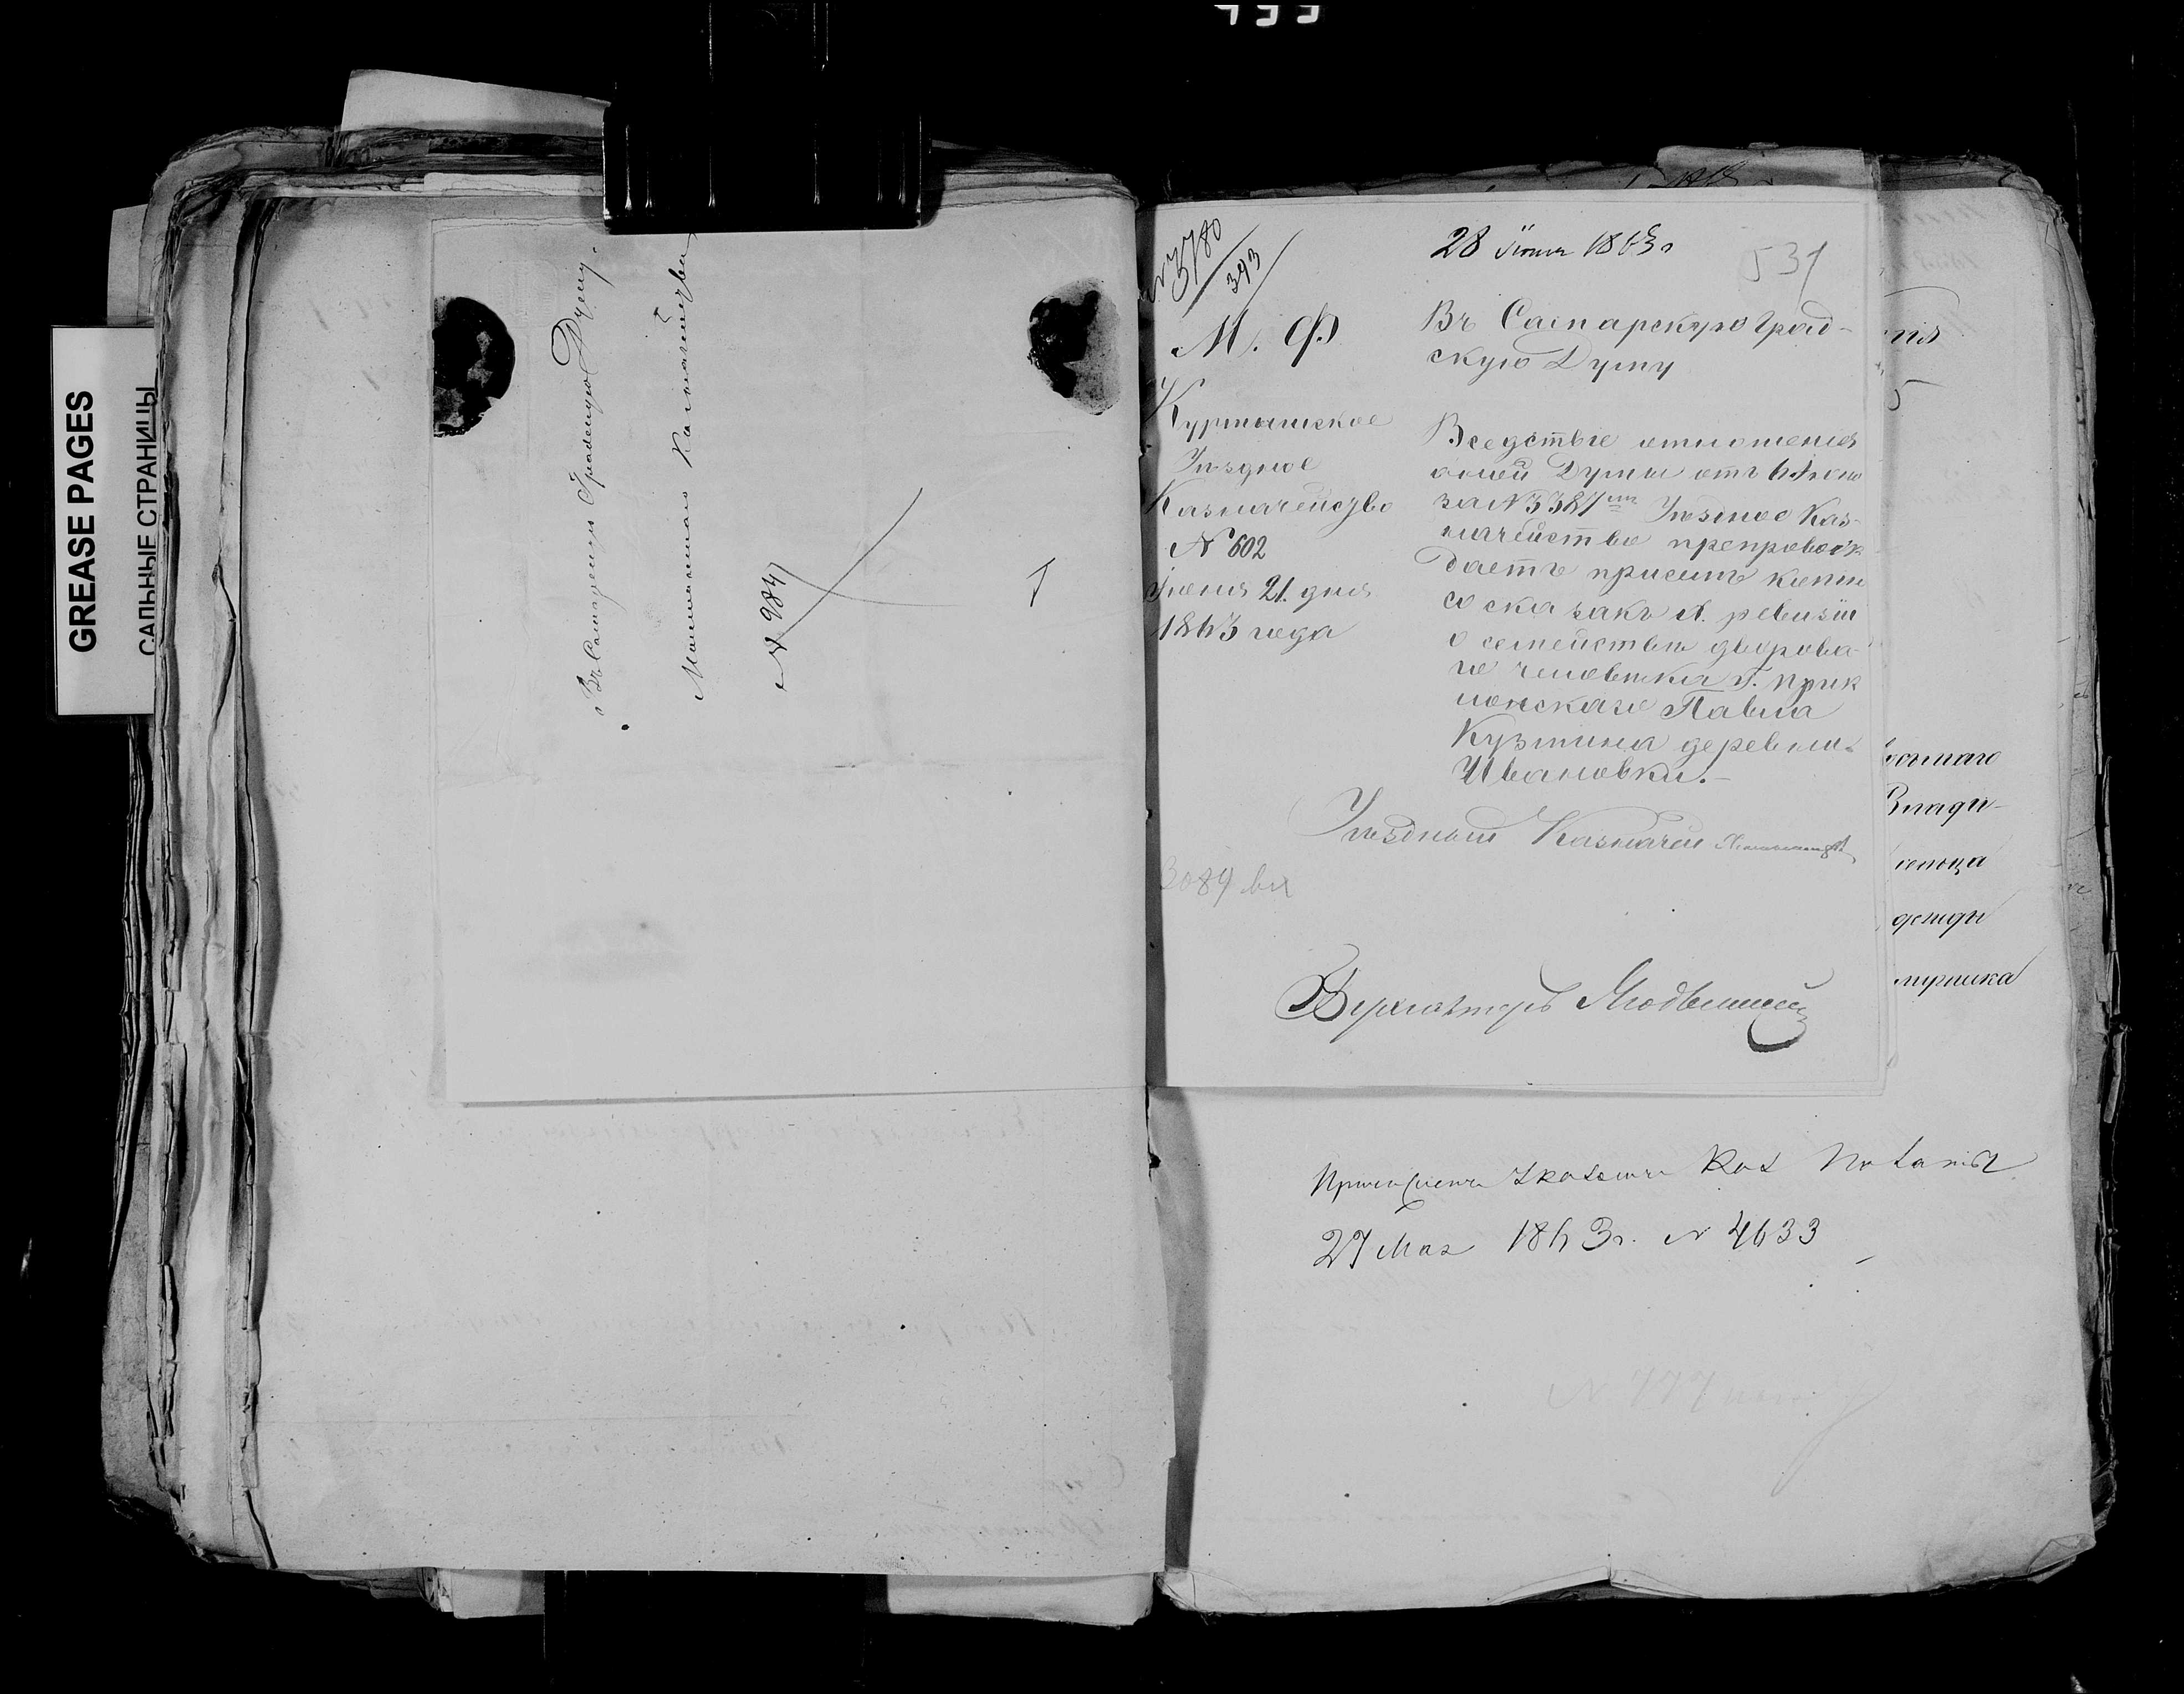 GREASE PAGES
САЛЬНЫЕ СТРАНИЦЫ
Въ Самарскую Градскую Думу.
Казначейства
№ 984
№ 3780
393
28 Іюня 1863 г
531
М. Ф.
Курмышское
Уѣздное
Казначейство
№ 602
Іюня 21. дня
1863 года
Въ Самарскую Град-
скую Думу
Вседствіе отношенія
оной Думы отъ 6 Іюня
за № 3387 Уѣздное Каз-
начейство препровож
даетъ при семъ копію
со сказакъ X. ревизіи
о семействѣ дворова-
го человѣка г. Прик
лонскаго Павла
Кузмина деревни
Ивановки.-
Уѣздный Казначей
3084 вх
Бухгалтеръ
Причислены указомъ Каз Палаты
27 Мая 1863 г. № 4633
№ 777
Влади-